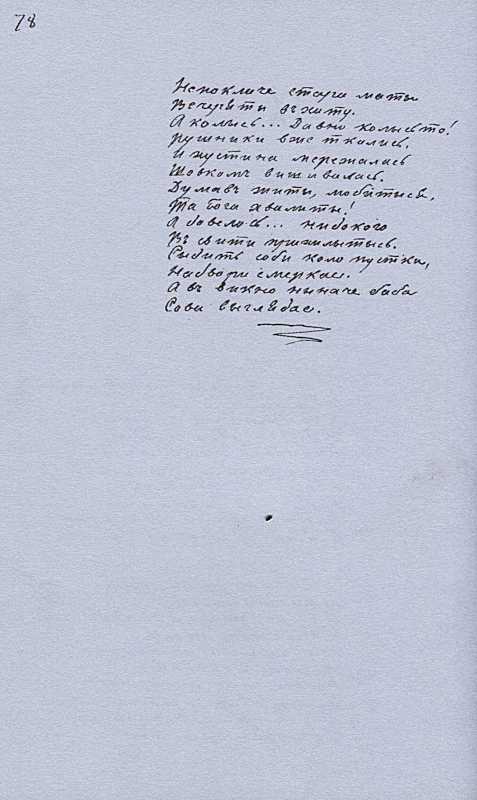 78
Непокличе стара маты
Вечеряты въ хату.
А колысь... Давно колысьто!
рушники вже ткались,
И хустина мережалась
Шовкомъ вишивалась.
Думавъ житы, любытысь,
Та бога хвалиты!
А довелось... нидокого
Въ свити прихилытысь.
Сыдить соби коло пустки,
Надвори смеркае.
А въ викно ныначе баба
Сова выглядае.